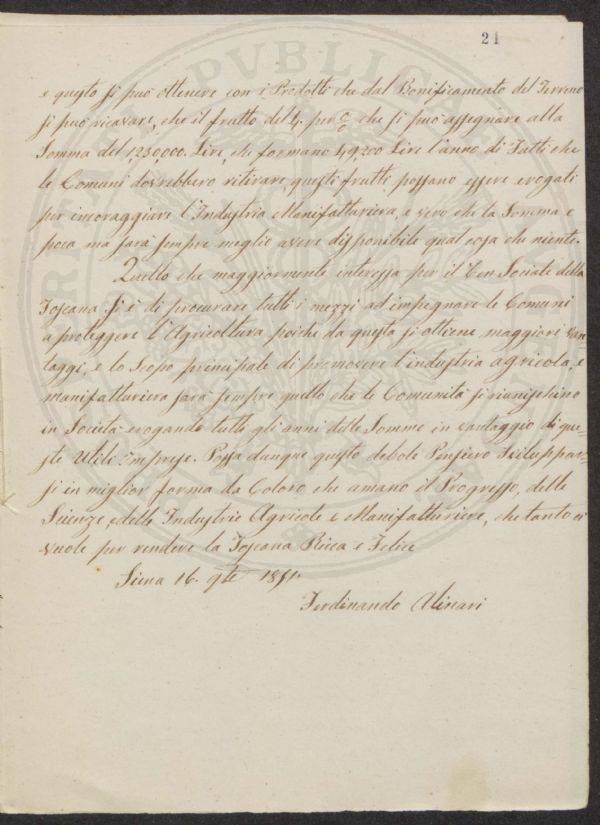 21
e questo si può ottenere con i Prodotti che dal Bonificamento del Terreno
si può ricavare, che il frutto del 4. per c/o che si può assegnare alla
Somma del 1,230000. Lire, che formano 49200 Lire l'anno di Fatti che
le Comuni dovrebbero ritirare, questi frutti possano essere erogati
per incoraggiare l'Industria Manifatturiera, e vero che la Somma e
poca ma sarà sempre meglio avere disponibile qual cosa che niente.
Quello che maggiormente interessa per il Ben Sociale della
Toscana si è di procurare tutti i mezzi ad impegnare le Comuni
a proteggere l'Agricoltura poiche da questa si ottiene maggiori van=
taggi, e lo Scopo principale di promovere l'industria agricola, e
manifatturiera sarà sempre quello che le Comunità si riunischino
in Società erogando tutti gli anni delle Somme in vantaggio di que=
ste Utili Imprese. Possa dunque questo debole Pensiero Sviluppar=
si in miglior forma da Coloro che amano il Progresso, delle
Scienze, e delle Industrie Agricole e Manifatturiere, che tanto ci
vuole per rendere la Toscana Ricca e Felice
Siena 16. 1851.
Ferdinando Alinari